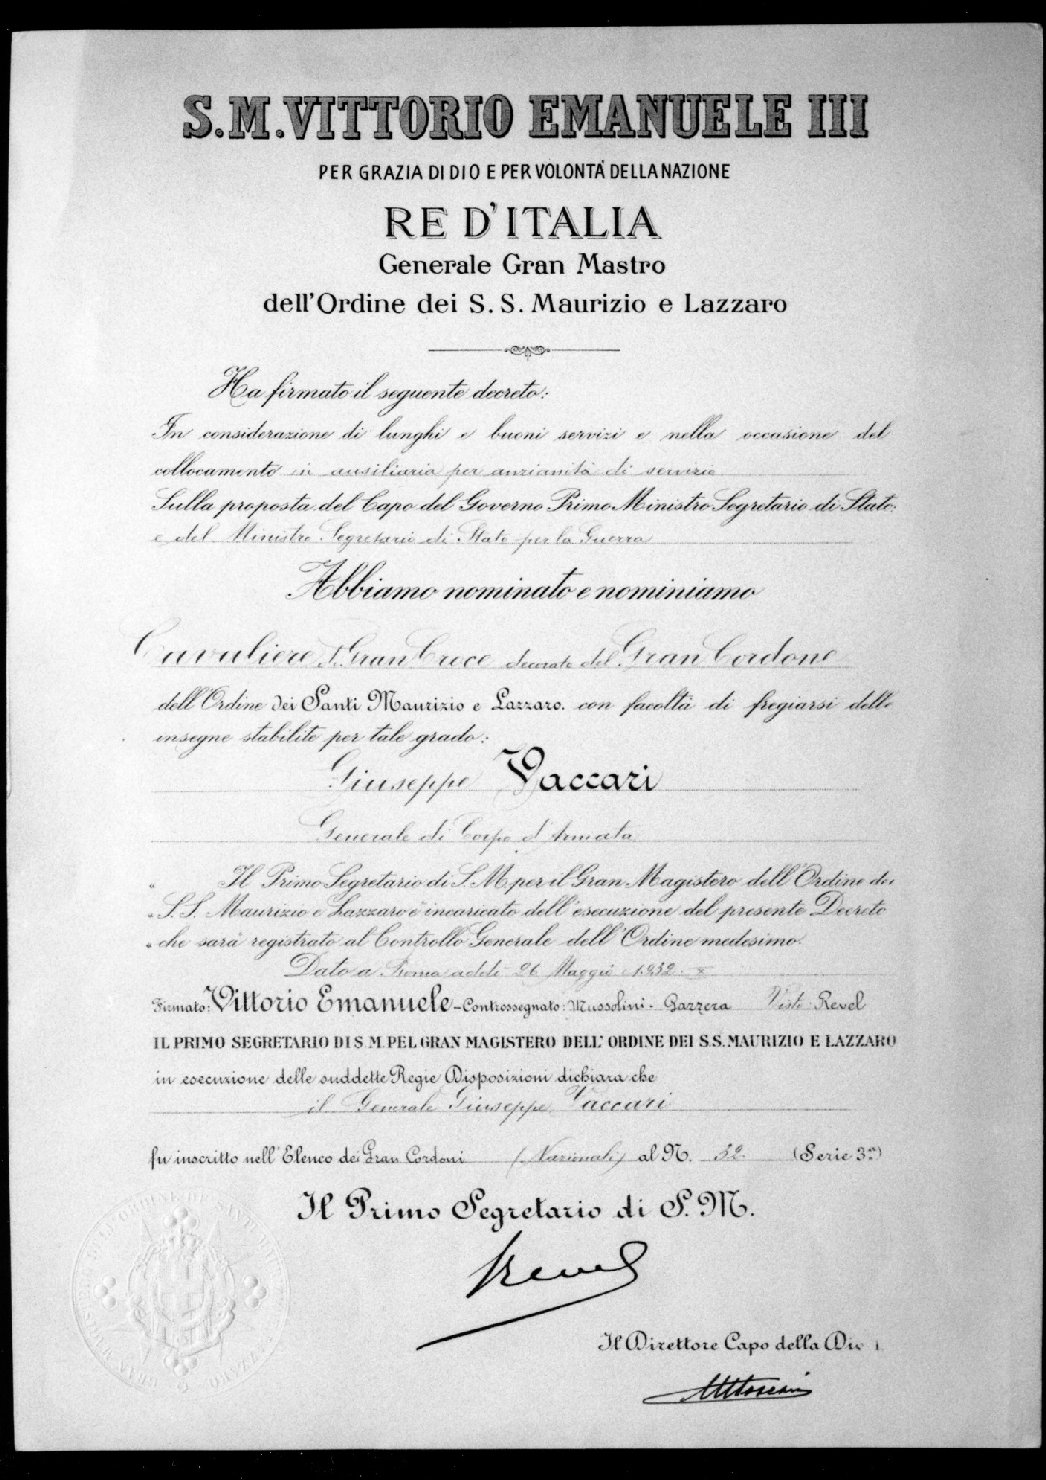 S.M.VITTORIO EMANUELE III
PER GRAZIA DI DIO E PER VOLONTÀ DELLA NAZIONE
RE D'ITALIA
Generale Gran Mastro
dell'Ordine dei S.S. Maurizio e Lazzaro
Ha firmato il seguente decreto:
In considerazione di lunghi e buoni servizi e nella occasione del
collocamento in ausiliaria per anzianità di servizio
Sulla proposta del Capo del Governo Primo Ministro Segretario di Stato,
e del Ministro Segretario di Stato per la Guerra
Abbiamo nominato e nominiamo
Cavaliere di Gran Croce decorato del Gran Cordone
dell'Ordine dei Santi Maurizio e Lazzaro. con facoltà di fregiarsi delle
insegne stabilite per tale grado:
Giuseppe Vaccari
Generale di Corpo d'Armata
Il Primo Segretario di S. M. per il Gran Magistero dell'Ordine dei
S.S. Maurizio e Lazzaro è incaricato dell'esecuzione del presente Decreto
che sarà registrato al Controllo Generale dell'Ordine medesimo.
Dato a Roma addì 26 Maggio 1932.
Firmato: Vittorio Emanuele - Controssegnato: Mussolini - Gazzera Visto Revel
IL PRIMO SEGRETARIO DI S M. PEL GRAN MAGISTERO DELL'ORDINE DEI S.S. MAURIZIO E LAZZARO
in esecuzione delle suddette Regie Disposizioni dichiara che
il Generale Giuseppe Vaccari
fu inscritto nell'Elenco dei Gran Cordoni (Nazionali) al N. 52 (Serie 3ª)
Il Primo Segretario di S. M.
Revel
Il Direttore Capo della Div